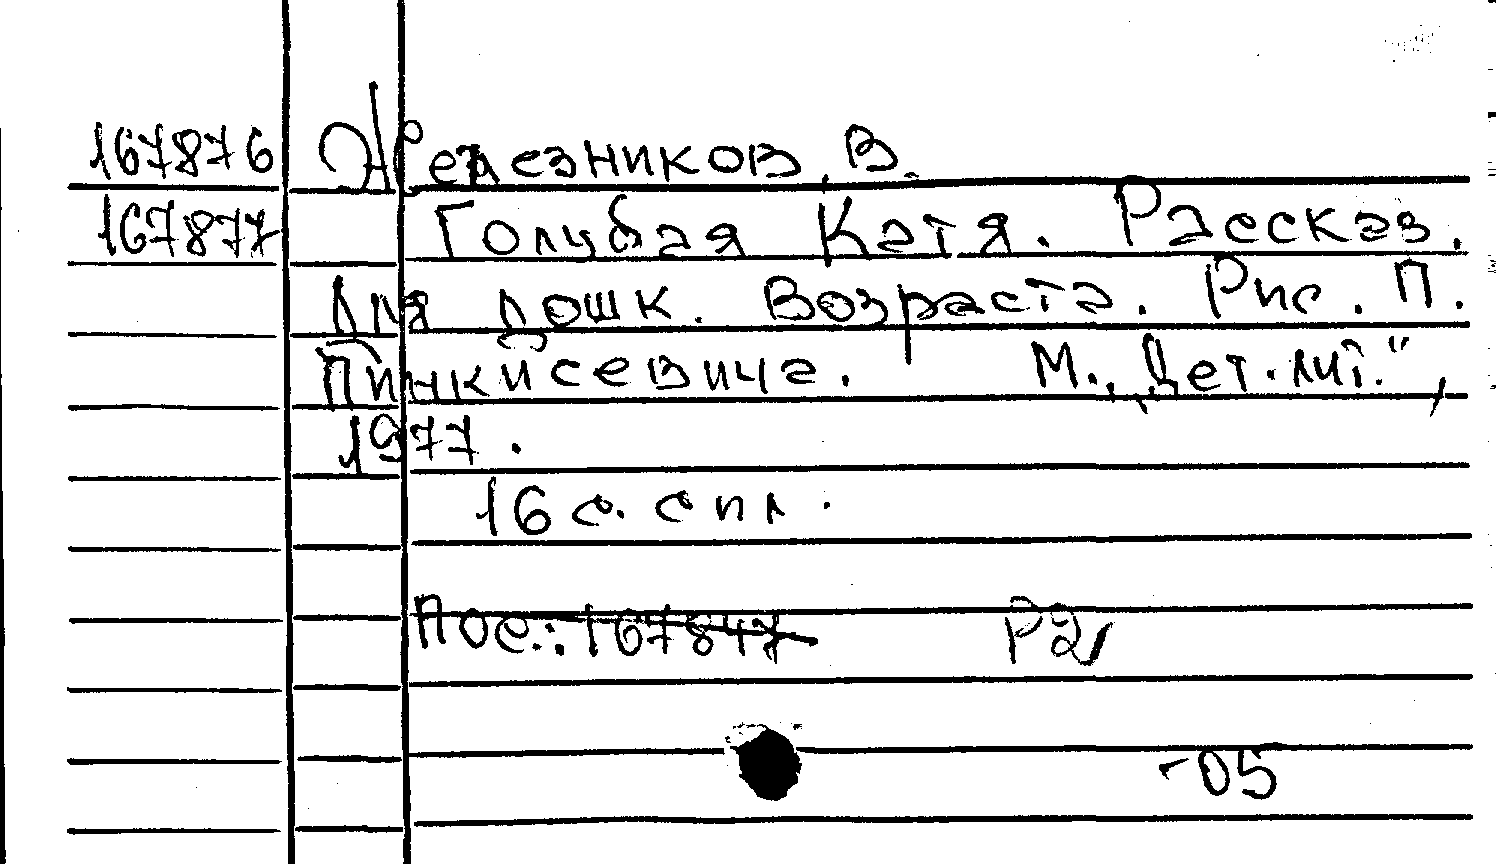 167876 Железников, В.
167877 Голубая Катя. Рассказ.
Для дошк. Возраста. Рис. П.
Пинкисевича. М., „Дет. лит.",
1977.
16 с. с ил.
Пос.: 167847 Р2
-05